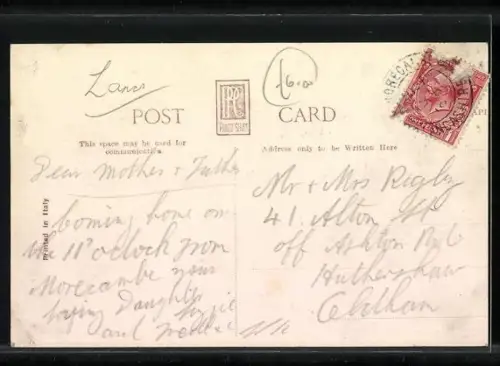 Lancs
6.00
POST CARD
RP
PHOTOSTAPE
MORECA
LANCASHIRE
This space may be used for
communication.
Address only to be Written Here
Printed in Italy
Dear Mother & Father
Coming home on
the 11 o'clock from
Morecambe your
loving Daughter
and
Mr & Mrs Rigby
41 Alton St
off Ashton Rd
Hathershaw
Oldham